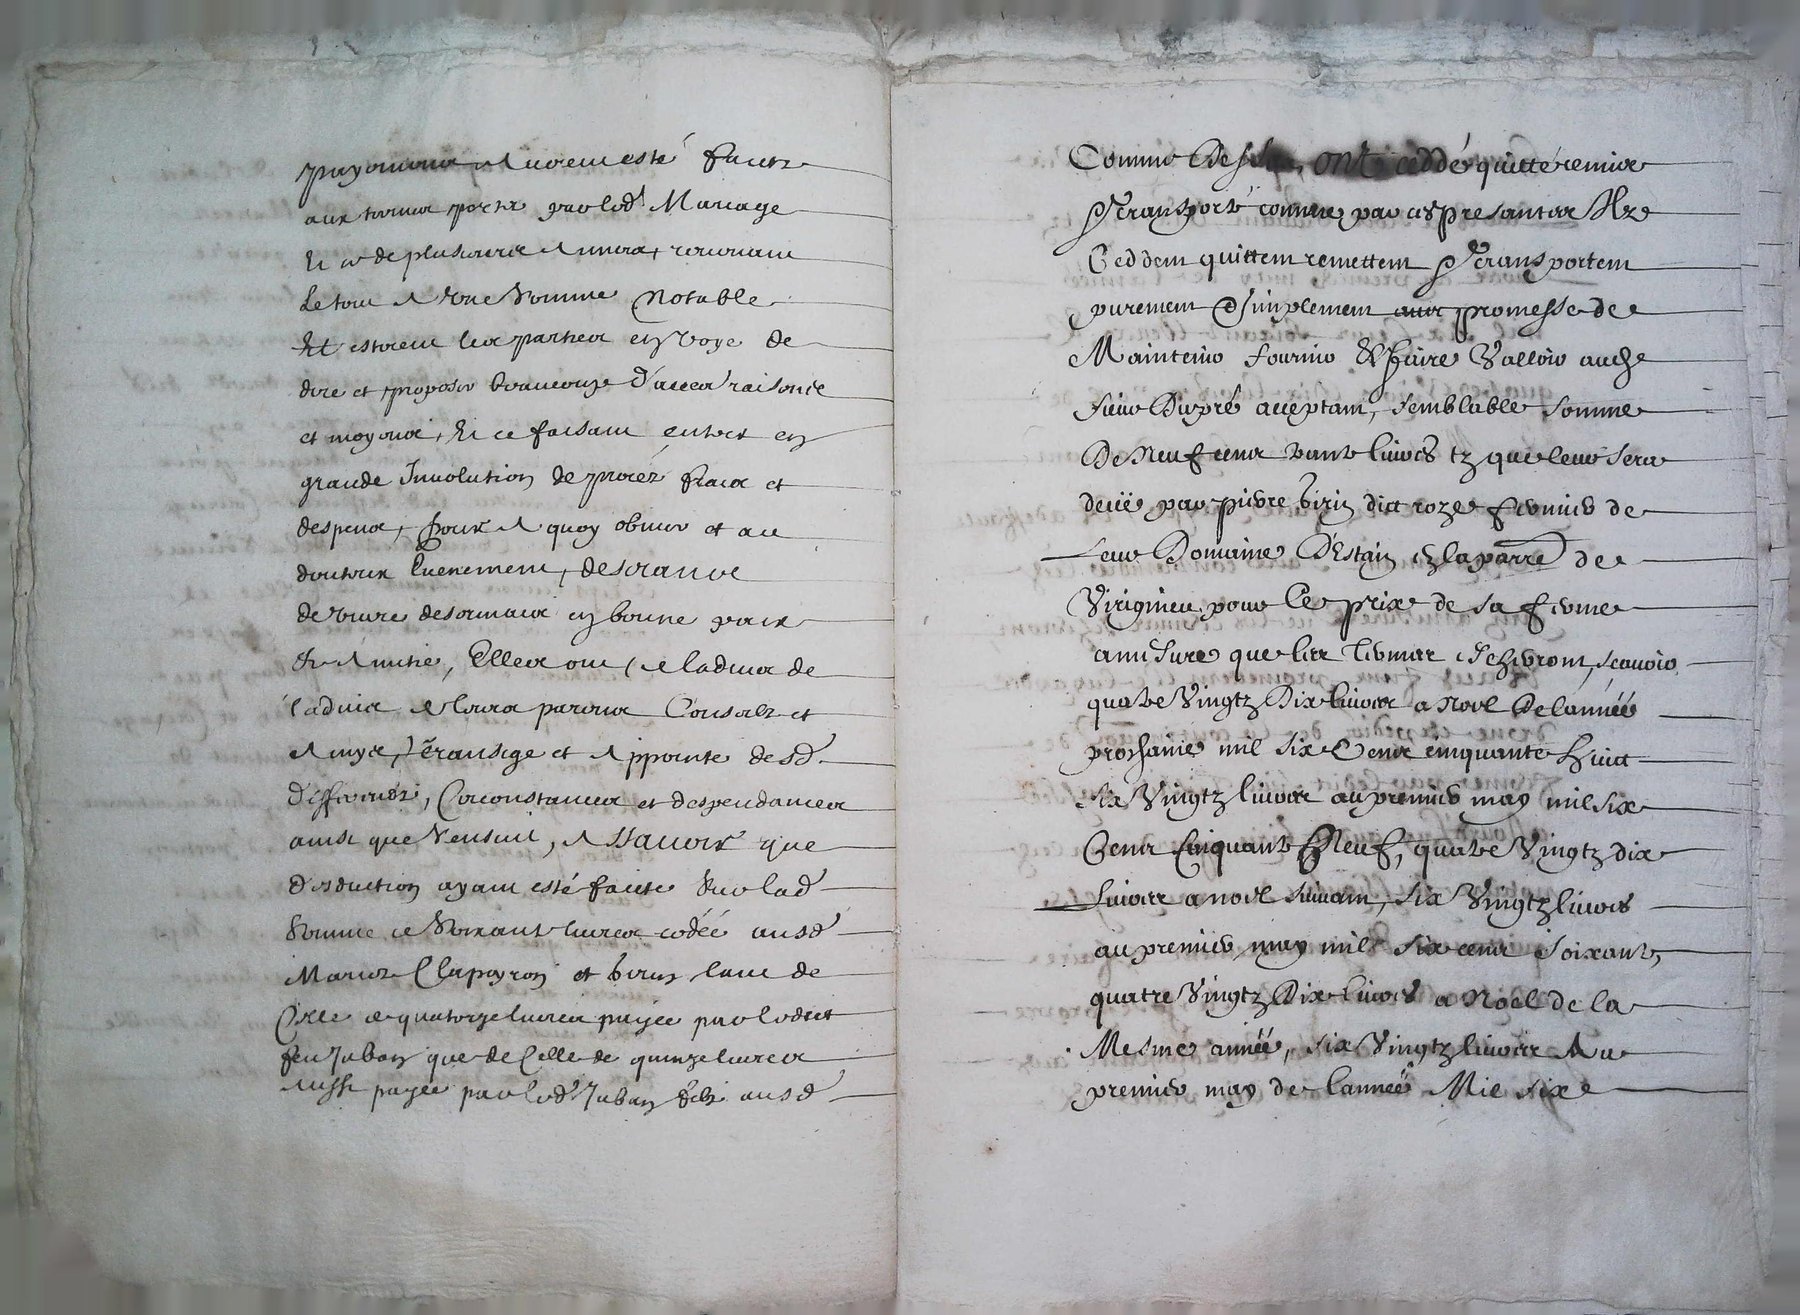 payemens Auroient esté faictz
aux termes portez par led Mariage
Et ce de plusieurs Annees, revenant
Le tout A Une Somme Notable
Et estoient les parties en voye de
dire et proposer beaucoup d'aultres raisons
et moyens, Et ce faisant entrer en
grande Involution de procez fraix et
despens, Pour A quoy obvier et au
doubteux Evenement, desirants
de vivre desormais en bonne paix
Et Amitié, Elles ont de l'advis de
l'advis de leurs parens Conseilz et
Amys, Transigé et Appointé desd
Differendz, Circonstances et despendances
ainsi que s'ensuit, A Scavoir que
desduction ayant esté faicte Sur lad
Somme de Soixante livres cédée ausd
Mariez Clapeyron et birin, tant de
Celle de quatorze livres payée par ledict
feu Juban que de Celle de quinze livres
Aussi payée par led Juban filz ausd
Comme Dessus, ont ceddé quitté remis
& transporté comme par ces presantes Ilz
Ceddent quittent remettent & transportent
purement & simplement avec promesse de
Maintenir fournir & faire Valloir audt
sieur Dupré acceptant, semblable somme
De Neuf cens vante livres tz que leur sera
deüe par pierre birin dict roze fermier de
Leur Domaine D'Estain en la parre de
Virignieu pour Le prix de sa ferme
a mesure que les termes escherront, scavoir
quatre Vingtz Dix livres a Noel De l'année
prochaine mil six Cens cinquante huict
six Vingtz livres au premier may mil six
Cens Cinquante Neuf, quatre Vingtz dix
livres a noel suivant, six Vingtz livres
au premier may mil six cens soixante,
quatre Vingtz Dix livres a Noel de la
Mesme année, six Vingtz livres Au
premier may de l'année Mil six